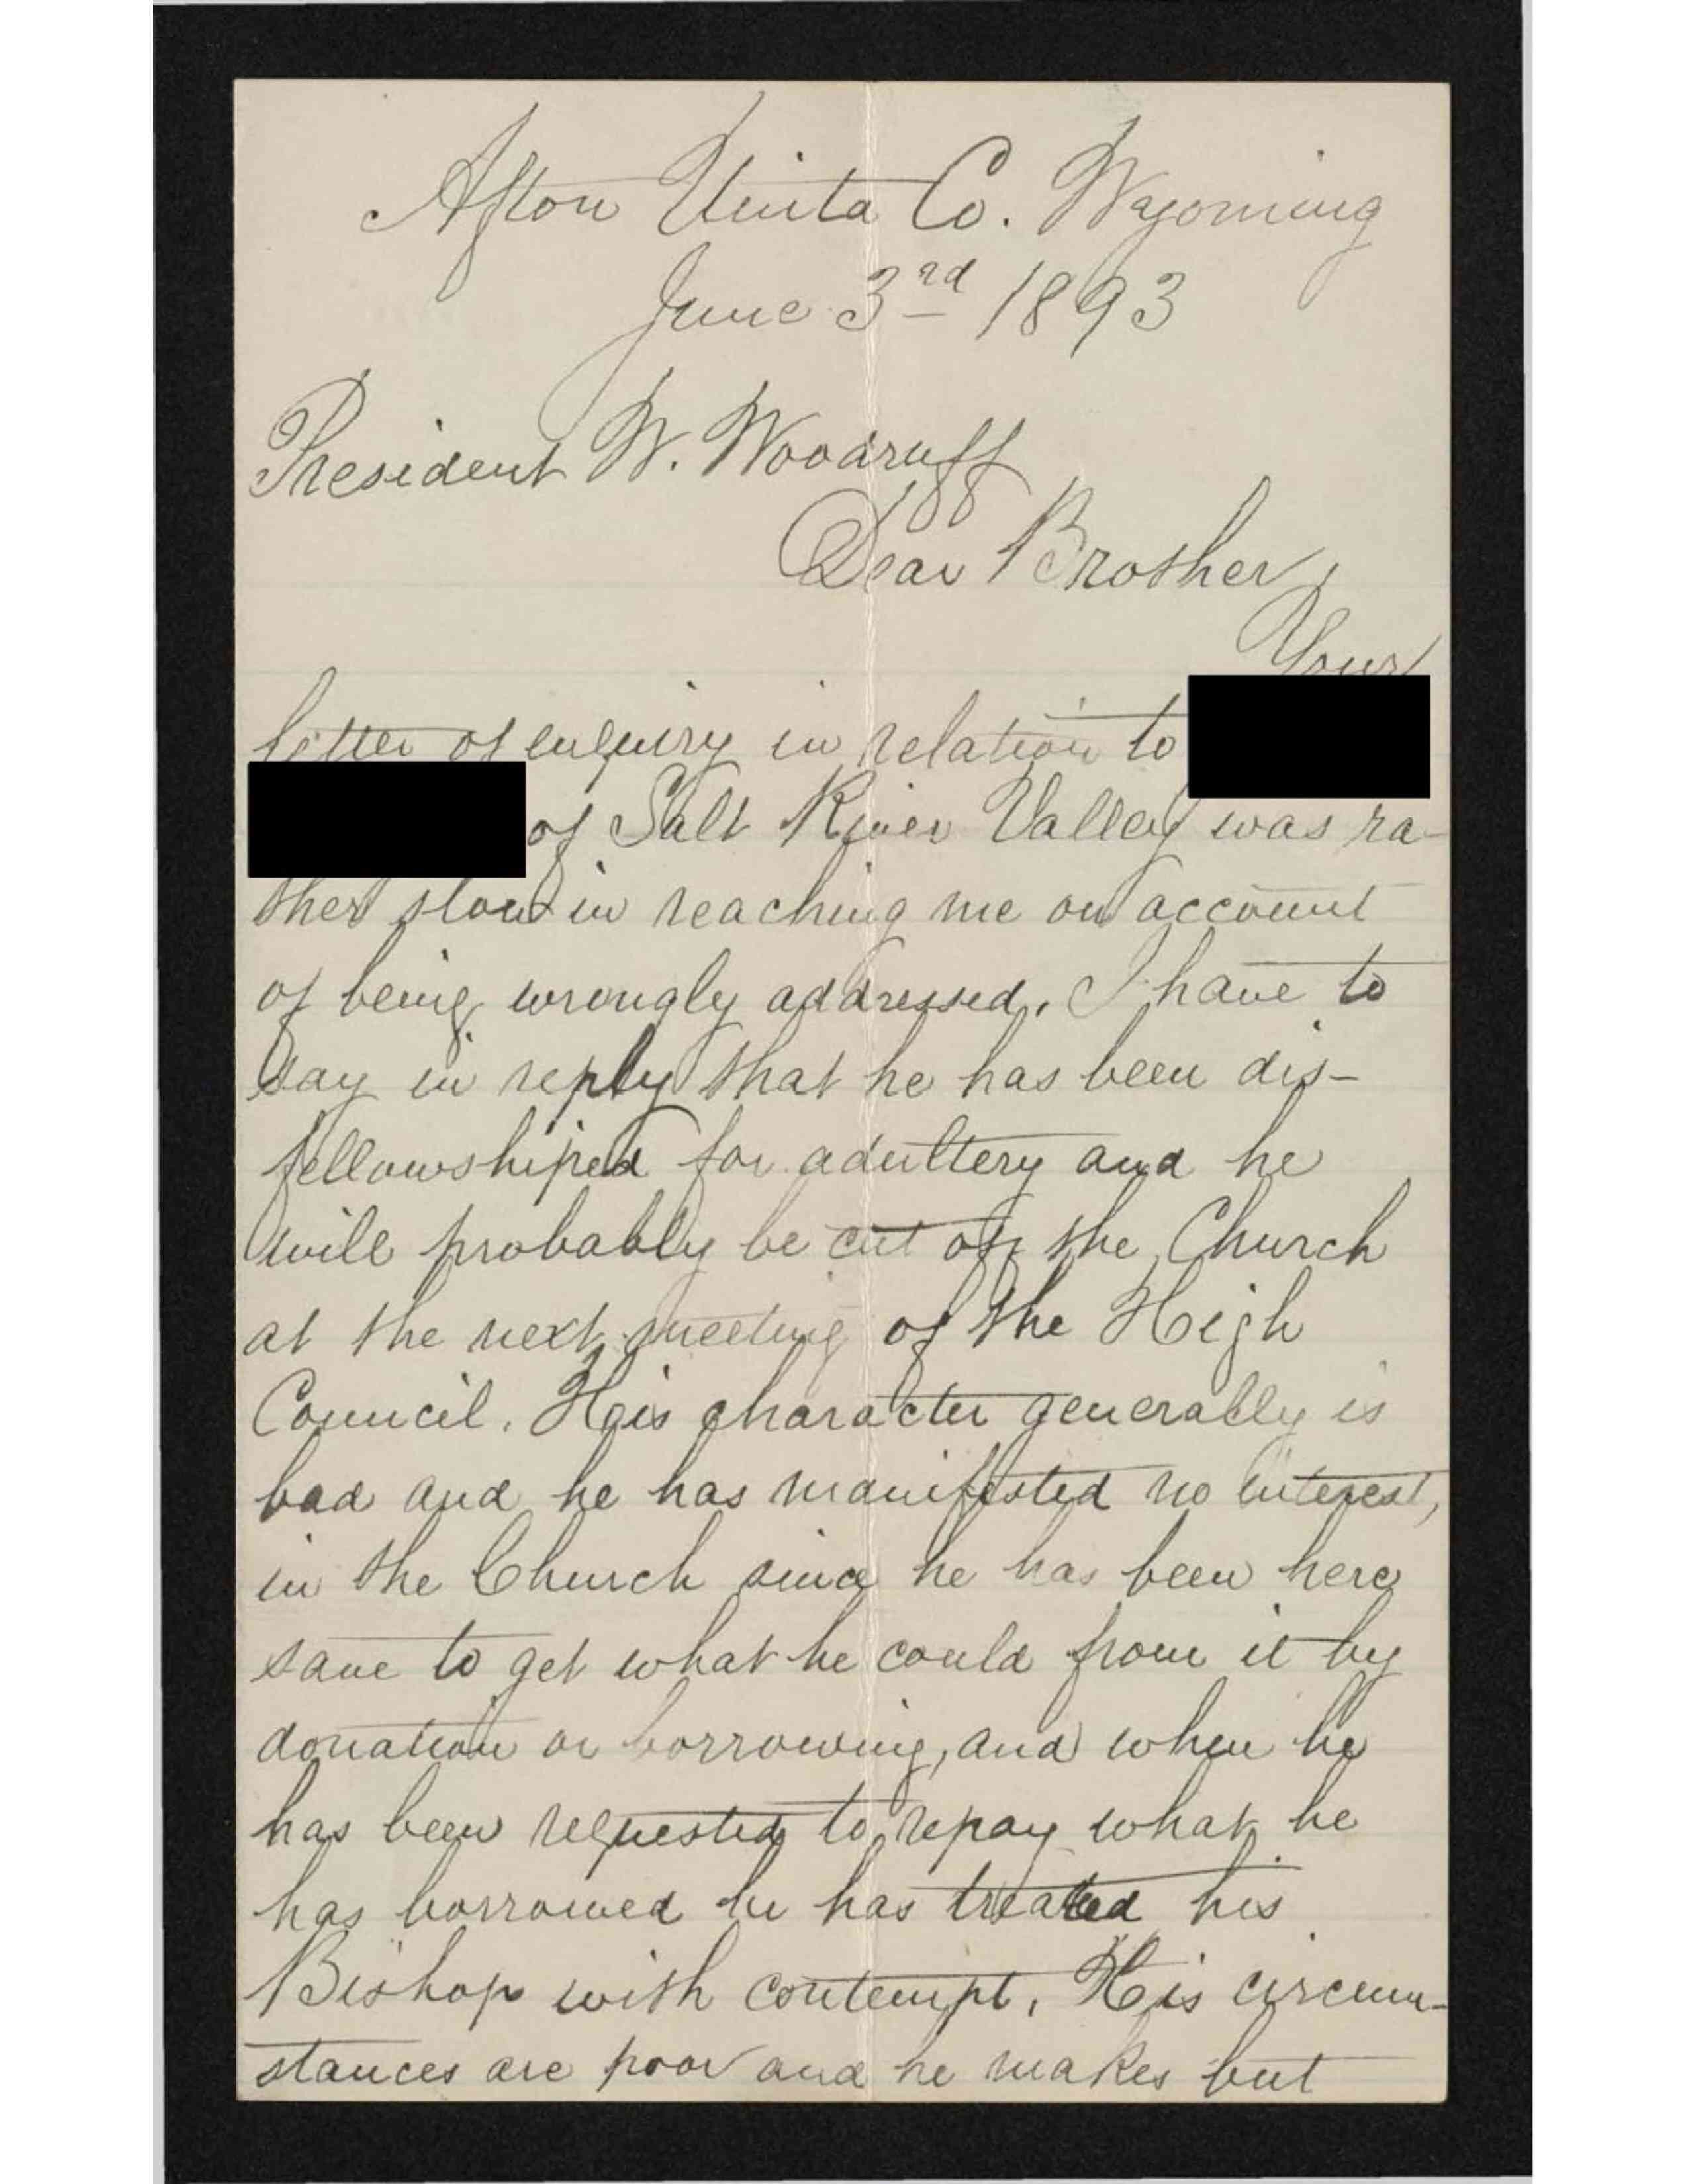 Afton Uinta Co. Wyoming
June 3rd 1893
President W. Woodruff
Dear Brother,
Your
letter of enquiry in relation to
of Salt River Valley was ra-
ther slow in reaching me on account
of being wrongly addressed. I have to
say in reply that he has been dis-
fellowshiped for adultery and he
will probably be cut off the Church
at the next meeting of the High
Council. His character generally is
bad and he has manifested no interest,
in the Church since he has been here
save to get what he could from it by
donation or borrowing, and when he
has been requested to repay what he
has borrowed he has treated his
Bishop with contempt. His circum-
stances are poor and he makes but